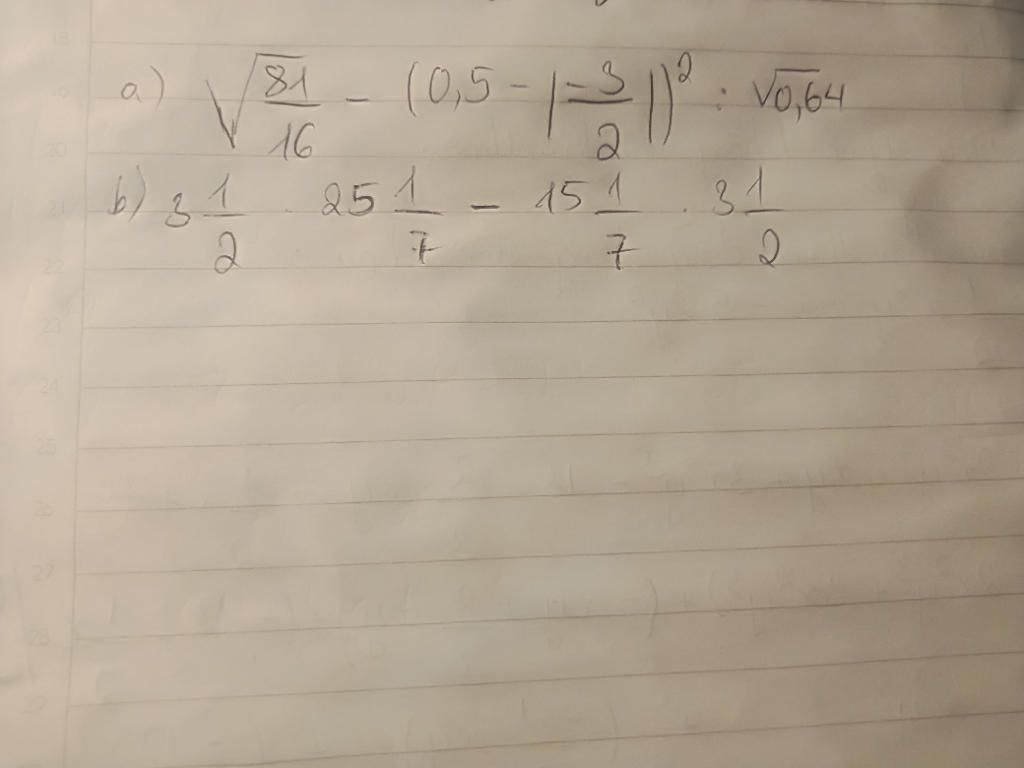 a) √(81/16) - (0,5 - |-3/2|)² : √0,64
b) 3 1/2 · 25 1/7 - 15 1/7 · 3 1/2